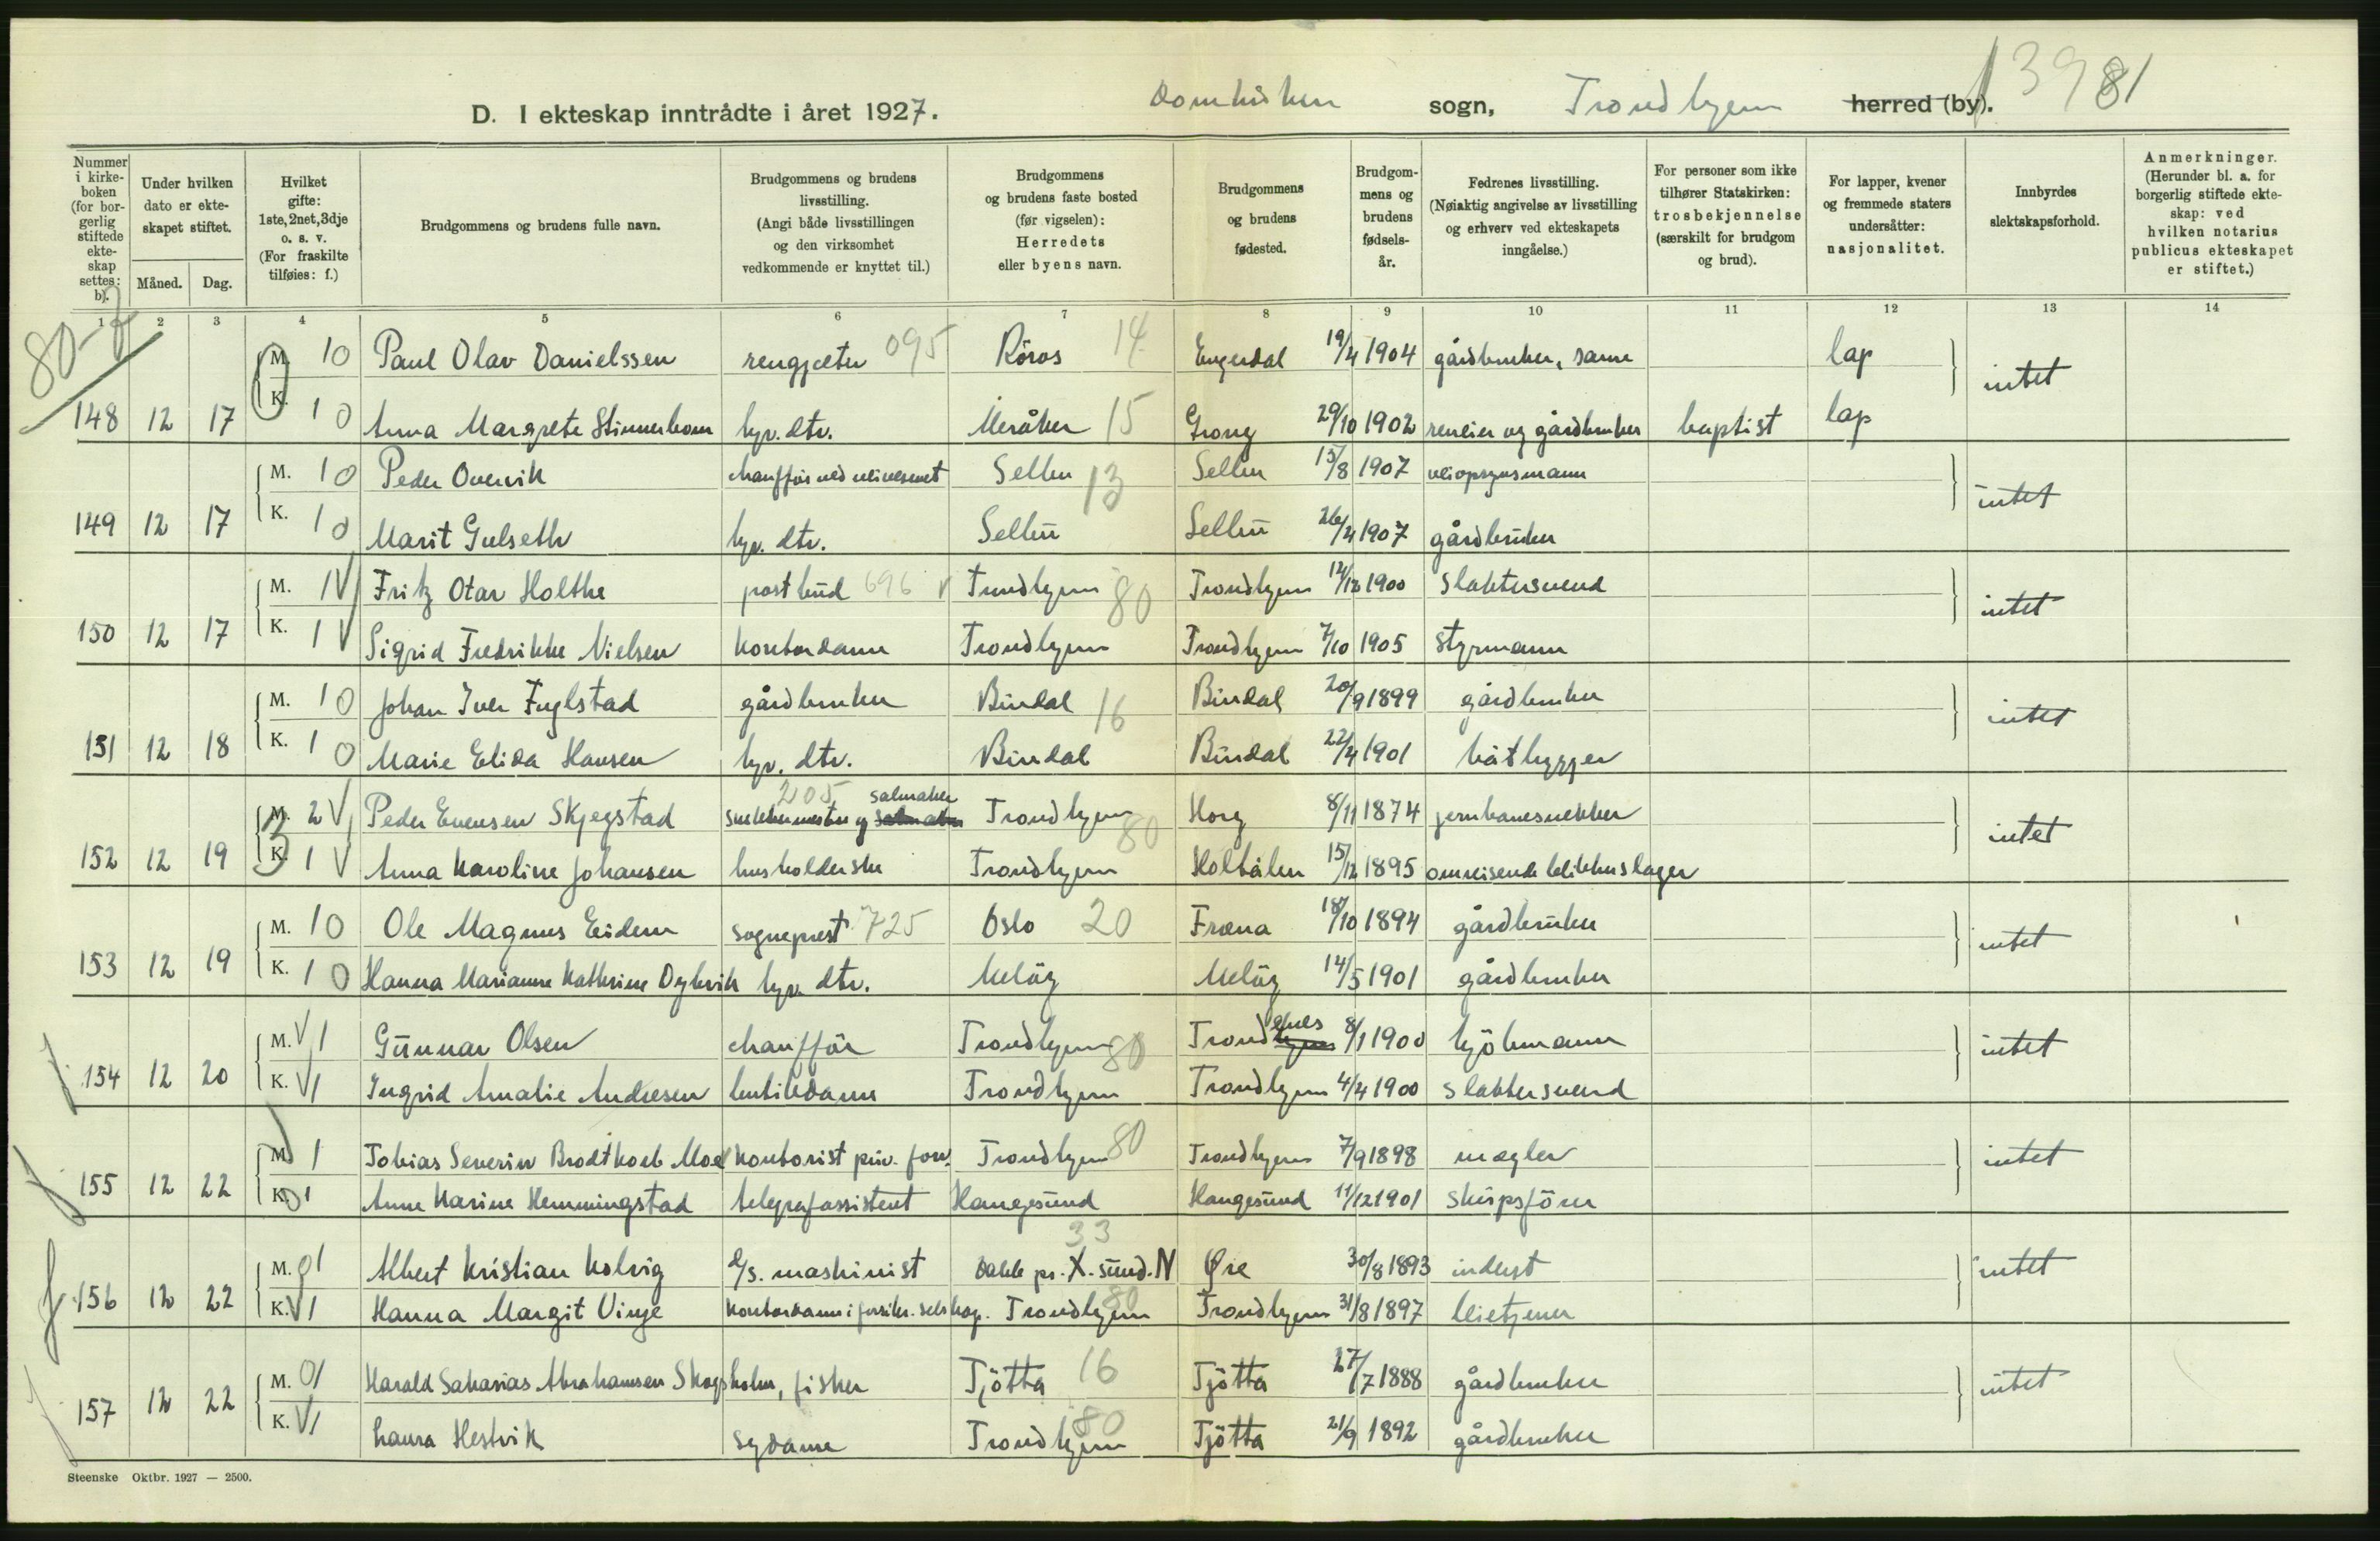 D. I ekteskap inntrådte i året 1927. Domkirken sogn, Trondhjem herred (by). 13981
Nummer i kirkeboken (for borgerlig stiftede ekteskap settes: b).
Under hvilken dato er ekteskapet stiftet.
Måned. Dag.
Hvilket gifte: 1ste, 2net, 3dje o. s. v. (For fraskilte tilføies: f.)
Brudgommens og brudens fulle navn.
Brudgommens og brudens livsstilling. (Angi både livsstillingen og den virksomhet vedkommende er knyttet til.)
Brudgommens og brudens faste bosted (før vigselen): Herredets eller byens navn.
Brudgommens og brudens fødested.
Brudgommens og brudens fødselsår.
Fedrenes livsstilling. (Nøiaktig angivelse av livsstilling og erhverv ved ekteskapets inngåelse.)
For personer som ikke tilhører Statskirken: trosbekjennelse (særskilt for brudgom og brud).
For lapper, kvener og fremmede staters undersåtter: nasjonalitet.
Innbyrdes slektskapsforhold.
Anmerkninger. (Herunder bl. a. for borgerlig stiftede ekteskap: ved hvilken notarius publicus ekteskapet er stiftet.)
1 2 3 4 5 6 7 8 9 10 11 12 13 14
M. 10 Paul Olav Danielssen rengjæter 095 Röros 14 Engerdal 19/4 1904 gårdbruker, same lap intet
148 12 17 K. 10 Anna Margrete Stinnerbom hjv. dtr. Meråker 15 Grong 29/10 1902 reneier og gårdbruker baptist lap
M. 10 Peder Overvik chaufför ved veivesenet Selbu 13 Selbu 15/8 1907 veiopsynsmann intet
149 12 17 K. 10 Marit Gulseth hjv. dtr. Selbu Selbu 26/4 1907 gårdbruker
M. 1 V Fritz Otar Holthe postbud 696 V Trondhjem 80 Trondhjem 12/12 1900 slaktersvend intet
150 12 17 K. 1 V Sigrid Fredrikke Nielsen kontordame Trondhjem Trondhjem 7/10 1905 styrmann
M. 10 Johan Iver Fuglstad gårdbruker Bindal 16 Bindal 20/9 1899 gårdbruker intet
151 12 18 K. 1 0 Marie Elida Hansen hjv. dtr. Bindal Bindal 22/4 1901 båtbygger
205 salmaker
M. 2 V Peder Evensen Skjegstad snekkermester og salmaker Trondhjem 80 Horg 8/11 1874 jernbanesnekker intet
152 12 19 K. 1 V Anna Karoline Johansen husholderske Trondhjem Holtålen 15/12 1895 omreisende blikkenslager
M. 10 Ole Magnus Eidem sogneprest 725 Oslo 20 Fræna 18/10 1894 gårdbruker intet
153 12 19 K. 1 0 Hanna Marianne Kathrine hjv. dtr. Melöy Melöy 14/5 1901 gårdbruker
M. V 1 Gunnar Olsen chaufför Trondhjem 80 Trondenes 8/1 1900 kjöbmann intet
154 12 20 K. V 1 Ingrid Amalie Andresen butikdame Trondhjem Trondhjem 4/4 1900 slaktersvend
M. V 1 Tobias Severin Brodtkorb Moe kontorist priv. forr. Trondhjem 80 Trondhjem 7/9 1898 megler intet
155 12 22 K. 0 1 Anne Karine Hemmingstad telegrafassistent Haugesund Haugesund 11/12 1901 skipsförer
33
M. 0 1 Albert Kristian Kolvig d/s. maskinist Dahle pr. X.sund. N Øre 30/8 1893 inderst intet
156 12 22 K. V 1 Hanna Margit Vinje kontordame i forsikr. selskap. Trondhjem 80 Trondhjem 31/8 1897 bietjener
M. 0 1 Harald Sakarias Abrahamsen Skogsholm, fisker Tjötta 16 Tjötta 27/7 1888 gårdbruker intet
157 12 22 K. V 1 Laura Hestvik sydame Trondhjem 80 Tjötta 21/9 1892 gårdbruker
Steenske Oktbr. 1927 — 2500.